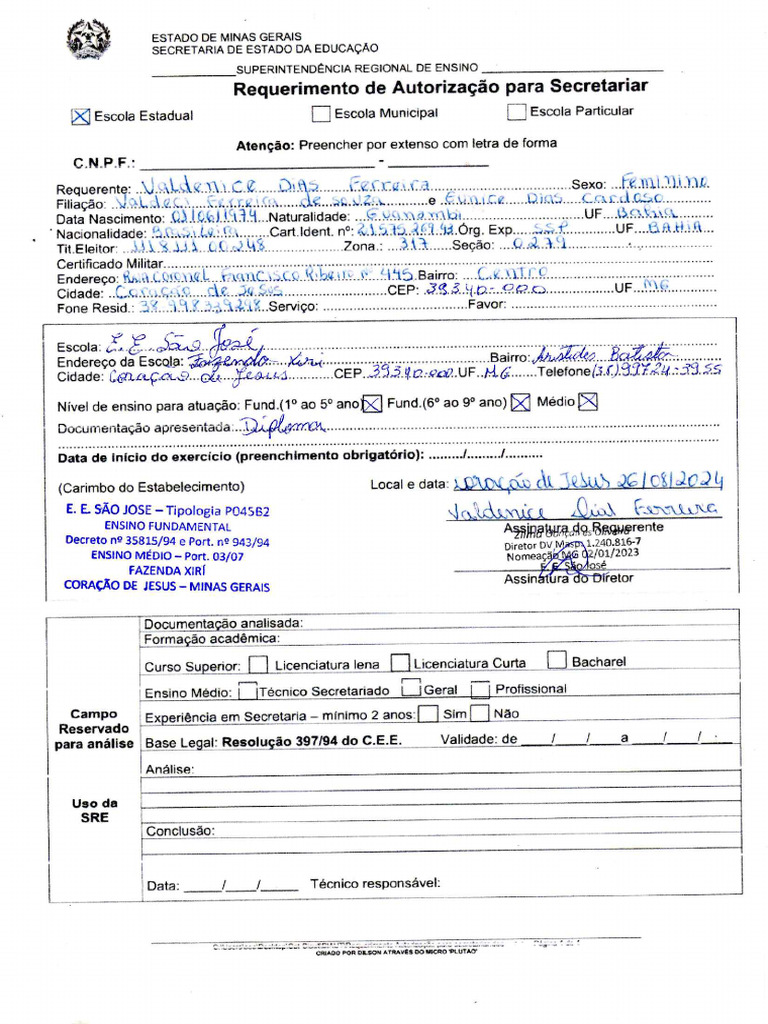 ESTADO DE MINAS GERAIS
SECRETARIA DE ESTADO DA EDUCAÇÃO
SUPERINTENDÊNCIA REGIONAL DE ENSINO
Requerimento de Autorização para Secretariar
Escola Estadual Escola Municipal Escola Particular
Atenção: Preencher por extenso com letra de forma
C.N.P.F.: -
Requerente: Valdenice Dias Ferreira Sexo: Feminino
Filiação: Valdeci Ferreira de souza e Eunice Dias Cardoso
Data Nascimento: 01/06/1974 Naturalidade: Guanambi UF Bahia
Nacionalidade: Brasileira Cart.Ident. nº: Órg. Exp. SSP UF BAHIA
Tit.Eleitor: 1118111 00248 Zona.: 317 Seção: 0279
Certificado Militar
Endereço: Rua Coronel Francisco Ribeiro nº 445 Bairro: Centro
Cidade: Coração de Jesus CEP: 39340-000 UF MG
Fone Resid.: 38 998339248 Serviço: Favor:
Escola: E.E São José
Endereço da Escola: Fazenda Xiri Bairro: Aristides Batista
Cidade: Coração de Jesus CEP 39340-000 UF MG Telefone (38) 99724-3955
Nível de ensino para atuação: Fund.(1º ao 5º ano) Fund.(6º ao 9º ano) Médio
Documentação apresentada: Diploma
Data de início do exercício (preenchimento obrigatório): ......./......./..........
(Carimbo do Estabelecimento) Local e data: Coração de Jesus 26/08/2024
E. E. SÃO JOSE – Tipologia P045B2
ENSINO FUNDAMENTAL
Decreto nº 35815/94 e Port. nº 943/94
ENSINO MÉDIO – Port. 03/07
FAZENDA XIRÍ
CORAÇÃO DE JESUS – MINAS GERAIS
Valdenice Dias Ferreira
Assinatura do Requerente
Diretor DV Masp: 1.240.816-7
Nomeação MG 02/01/2023
E. E. São José
Assinatura do Diretor
Campo Reservado para análise
Uso da SRE
Documentação analisada:
Formação acadêmica:
Curso Superior: Licenciatura lena Licenciatura Curta Bacharel
Ensino Médio: Técnico Secretariado Geral Profissional
Experiência em Secretaria – mínimo 2 anos: Sim Não
Base Legal: Resolução 397/94 do C.E.E. Validade: de ____/____/____ a ____/____/____.
Análise:
Conclusão:
Data: _____/____/_____ Técnico responsável:
CRIADO POR DILSON ATRAVÉS DO MICRO 'PLUTAO'